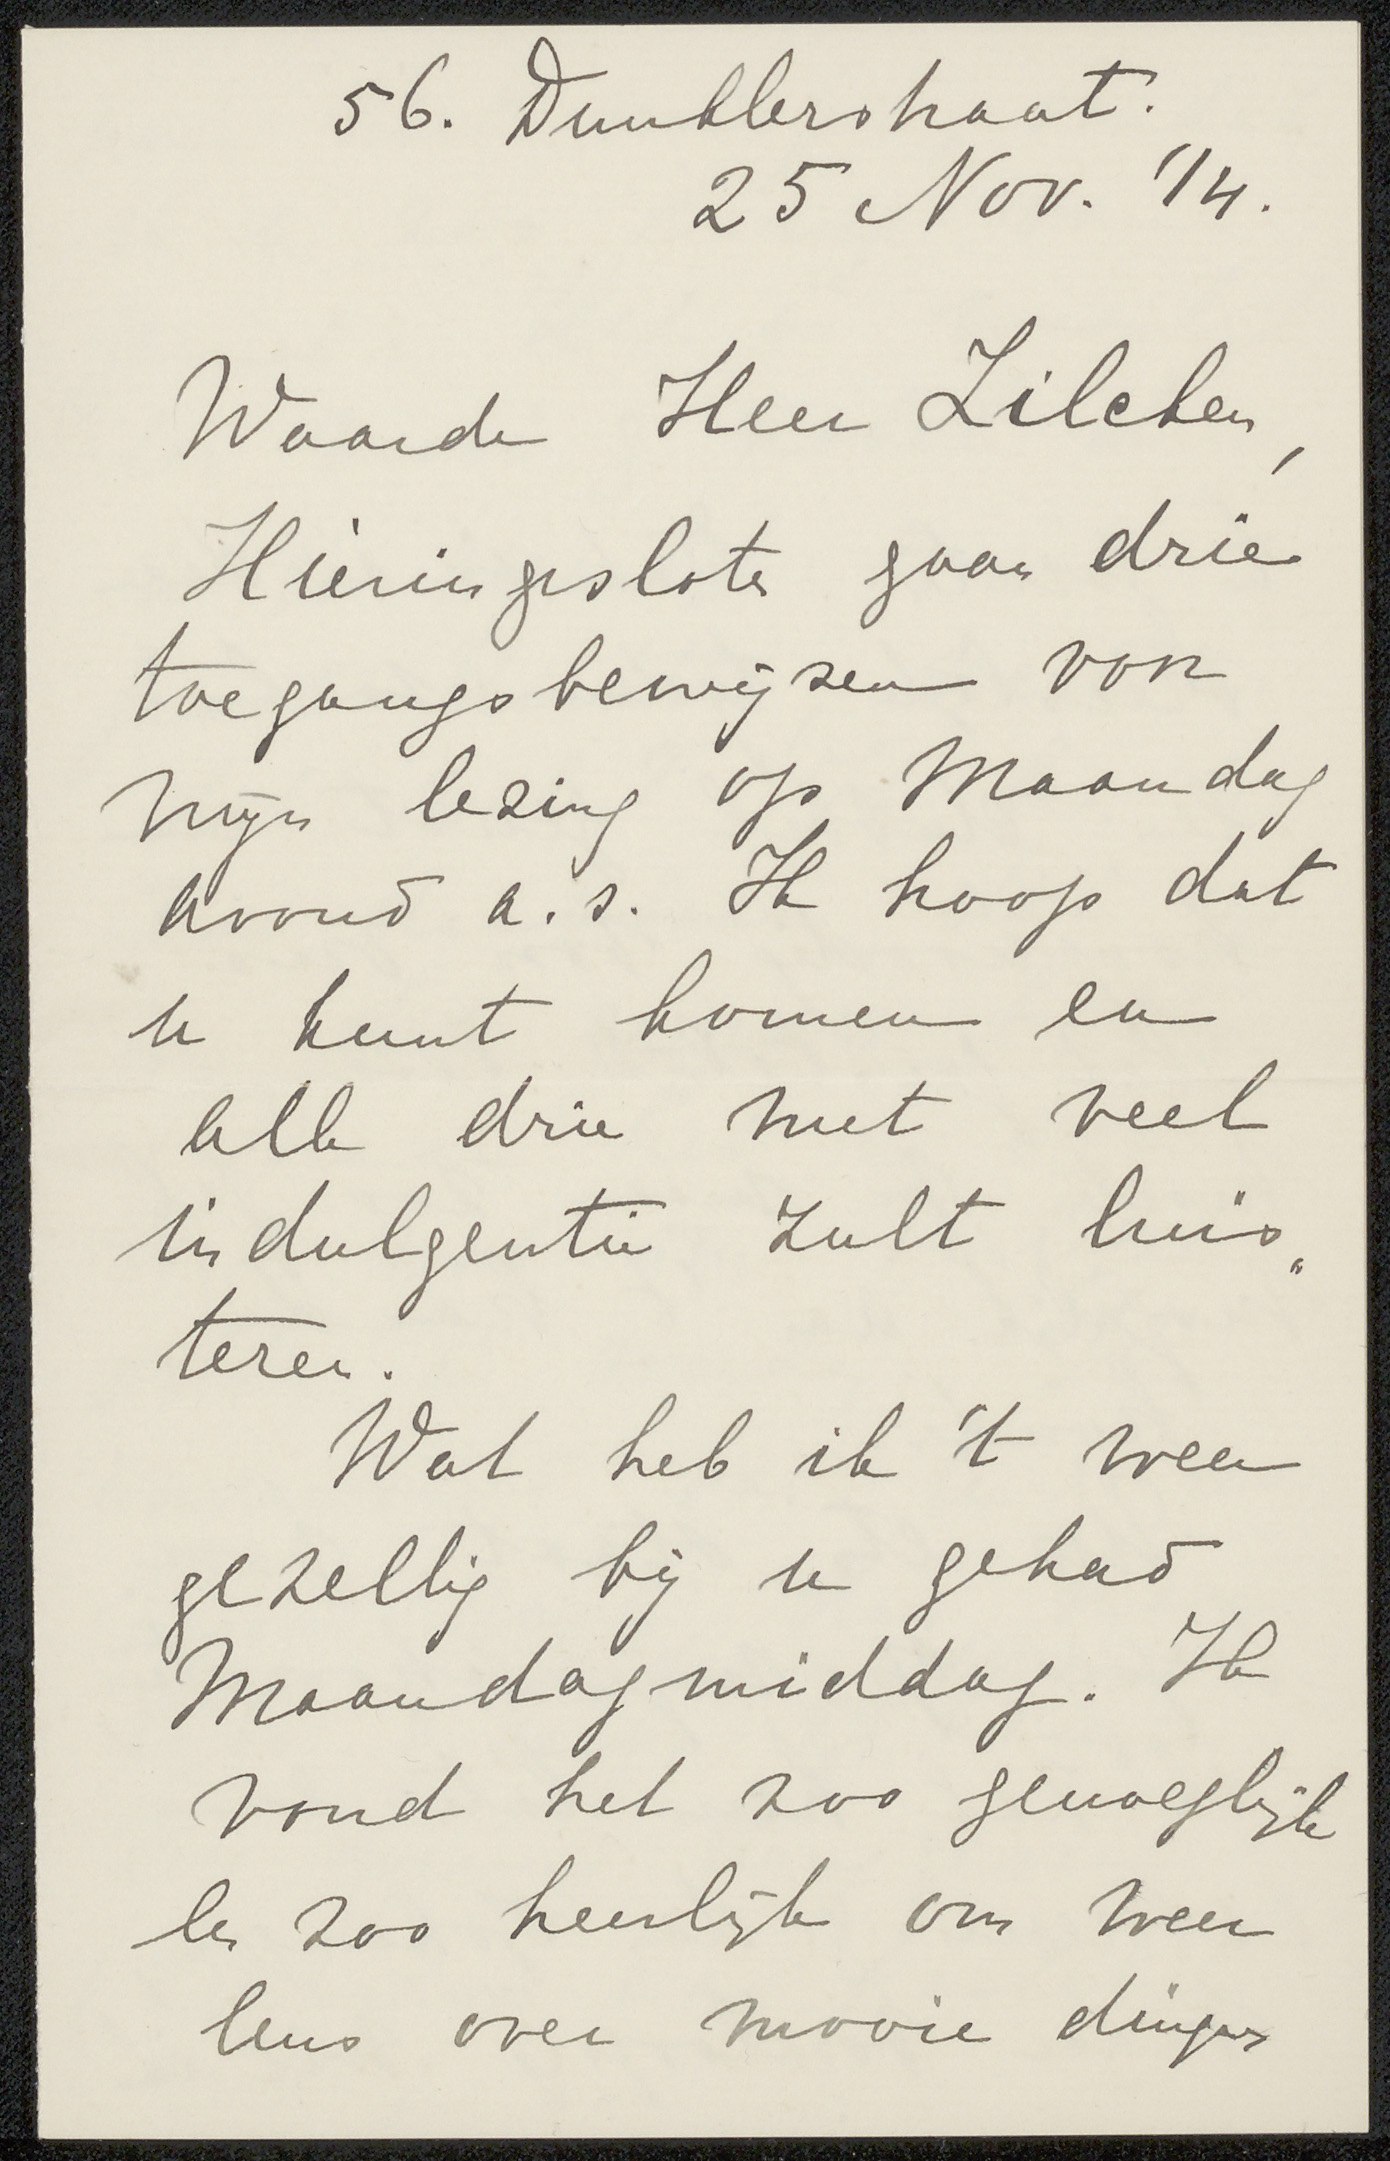 56. Duncklerstraat.
25 Nov. '14.
Waarde Heer Zilcken,
Hierin gesloten gaan drie
toegangsbewijzen voor
mijn lezing op Maandag
avond a.s. Ik hoop dat
u kunt komen en
alle drie met veel
indulgentie zult luis„
teren.
Wat heb ik 't weer
gezellig bij u gehad
Maandagmiddag. Ik
vond het zoo genoeglijk
en zoo heerlijk om weer
eens over mooie dingen